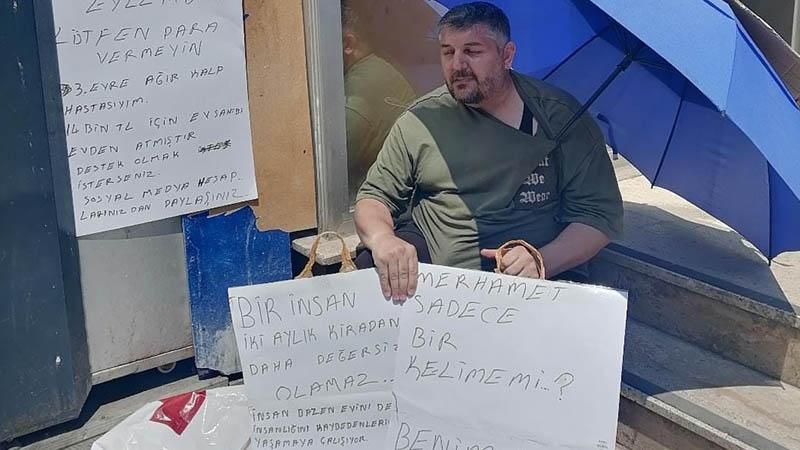 EYLEM
LÜTFEN PARA
VERMEYİN
3. EVRE AĞIR KALP
HASTASIYIM.
14 BİN TL İÇİN EV SAHİBİ
EVDEN ATMIŞTIR
DESTEK OLMAK
İSTERSENİZ.
SOSYAL MEDYA HESAP-
LARINIZDAN PAYLAŞINIZ.
BİR İNSAN
İKİ AYLIK KİRADAN
DAHA DEĞERSİZ
OLAMAZ..
İNSAN BAZEN EVİNİ DE
İNSANLIĞINI KAYBEDENLERİ
YAŞAMAYA ÇALIŞIYOR
MERHAMET
SADECE
BİR
KELİME Mİ..?
BENİM
We
Wear